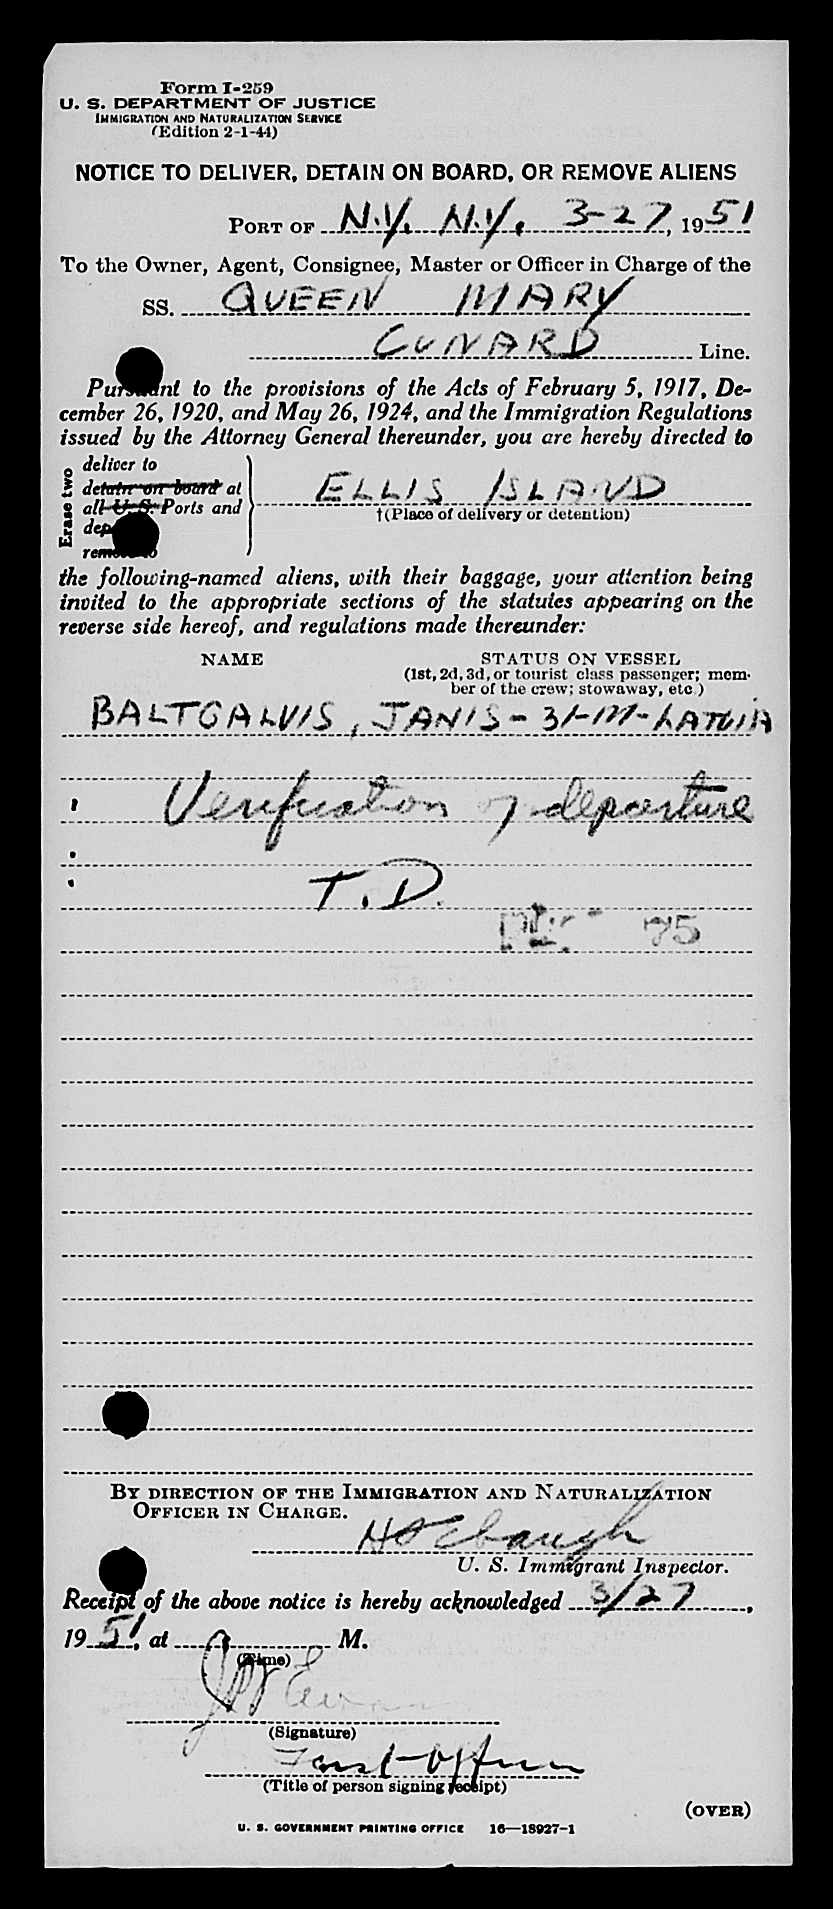 Form I-259
U. S. DEPARTMENT OF JUSTICE
IMMIGRATION AND NATURALIZATION SERVICE
(Edition 2-1-44)
NOTICE TO DELIVER, DETAIN ON BOARD, OR REMOVE ALIENS
PORT OF N.Y. N.Y. 3-27, 1951
To the Owner, Agent, Consignee, Master or Officer in Charge of the
SS. QUEEN MARY
CUNARD Line.
Pursuant to the provisions of the Acts of February 5, 1917, De-
cember 26, 1920, and May 26, 1924, and the Immigration Regulations
issued by the Attorney General thereunder, you are hereby directed to
Erase two
deliver to
detain on board at
all U. S. Ports and
remove to
ELLIS ISLAND
†(Place of delivery or detention)
the following-named aliens, with their baggage, your attention being
invited to the appropriate sections of the statutes appearing on the
reverse side hereof, and regulations made thereunder:
NAME STATUS ON VESSEL
(1st, 2d, 3d, or tourist class passenger; mem-
ber of the crew; stowaway, etc.)
BALTGALVIS, JANIS - 31-M-LATVIA
Verification of departure
T.D.
75
BY DIRECTION OF THE IMMIGRATION AND NATURALIZATION
OFFICER IN CHARGE.
U. S. Immigrant Inspector.
Receipt of the above notice is hereby acknowledged 3/27,
1951, at M.
(Time)
(Signature)
(Title of person signing receipt)
(OVER)
U. S. GOVERNMENT PRINTING OFFICE 16—18927-1